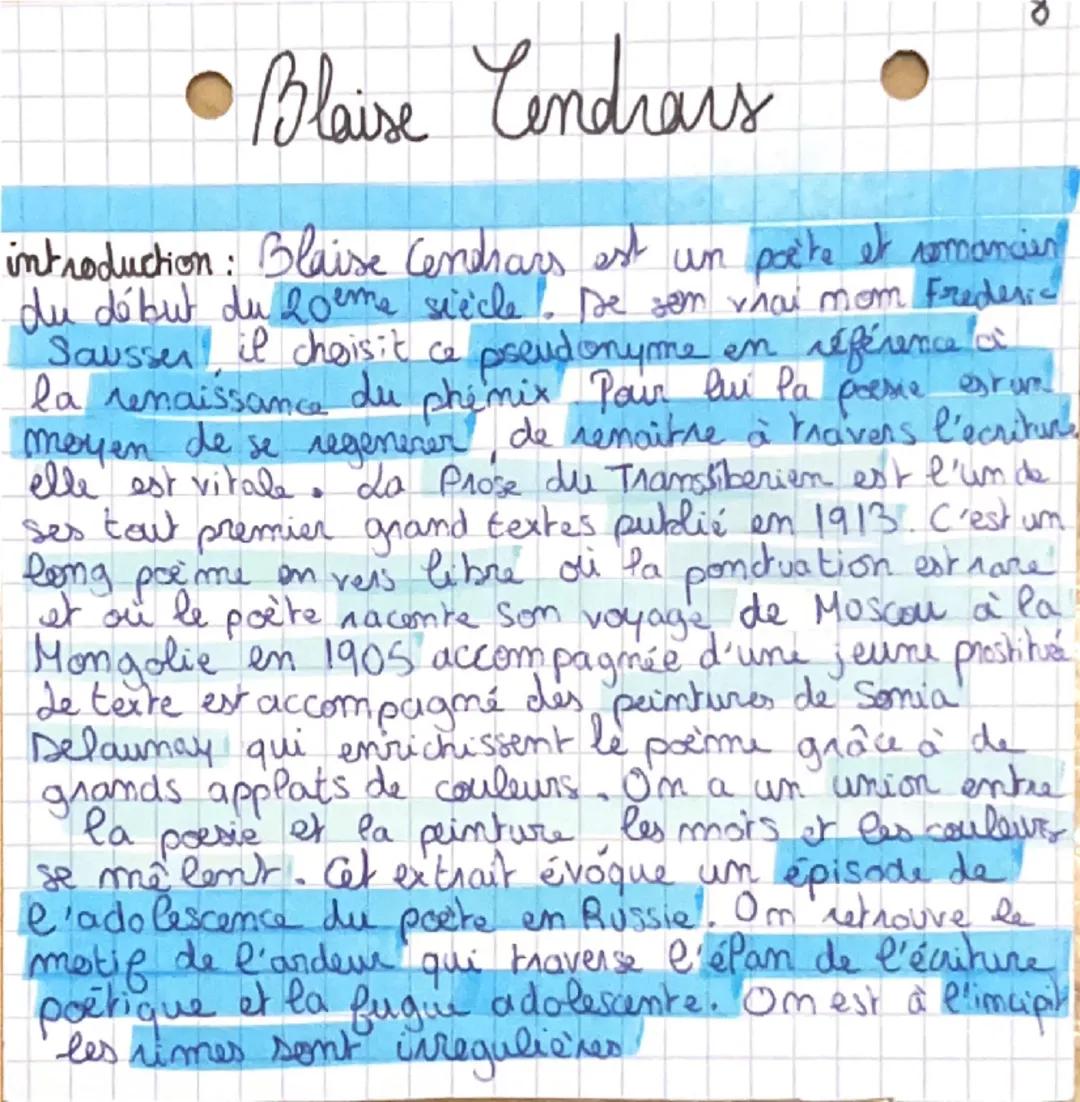 Blaise Cendrars
introduction : Blaise Cendrars est un poète et romancier
du début du 20eme siècle. De son vrai nom Frederic
Sausser, il choisit ce pseudonyme en référence à
la renaissance du phénix. Pour lui la poesie est un
moyen de se regenerer, de renaitre à travers l'ecriture
elle est vitale. La Prose du Transsiberien est l'un de
ses tout premier grand textes publié en 1913. C'est un
long poème en vers libre où la ponctuation est rare
et où le poète raconte son voyage de Moscou à la
Mongolie en 1905 accompagnée d'une jeune prostituée
Le texte est accompagné des peintures de Sonia
Delaunay qui enrichissent le poème grâce à de
grands applats de couleurs. On a un union entre
la poesie et la peinture les mots et les couleurs
se mêlent. Cet extrait évoque un épisode de
l'adolescence du poète en Russie. On retrouve le
motif de l'ardeur qui traverse l'élan de l'écriture
poétique et la fugue adolescente. On est à l'incipit
les rimes sont irregulières